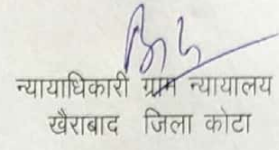 न्यायाधिकारी ग्राम न्यायालय
खैराबाद जिला कोटा